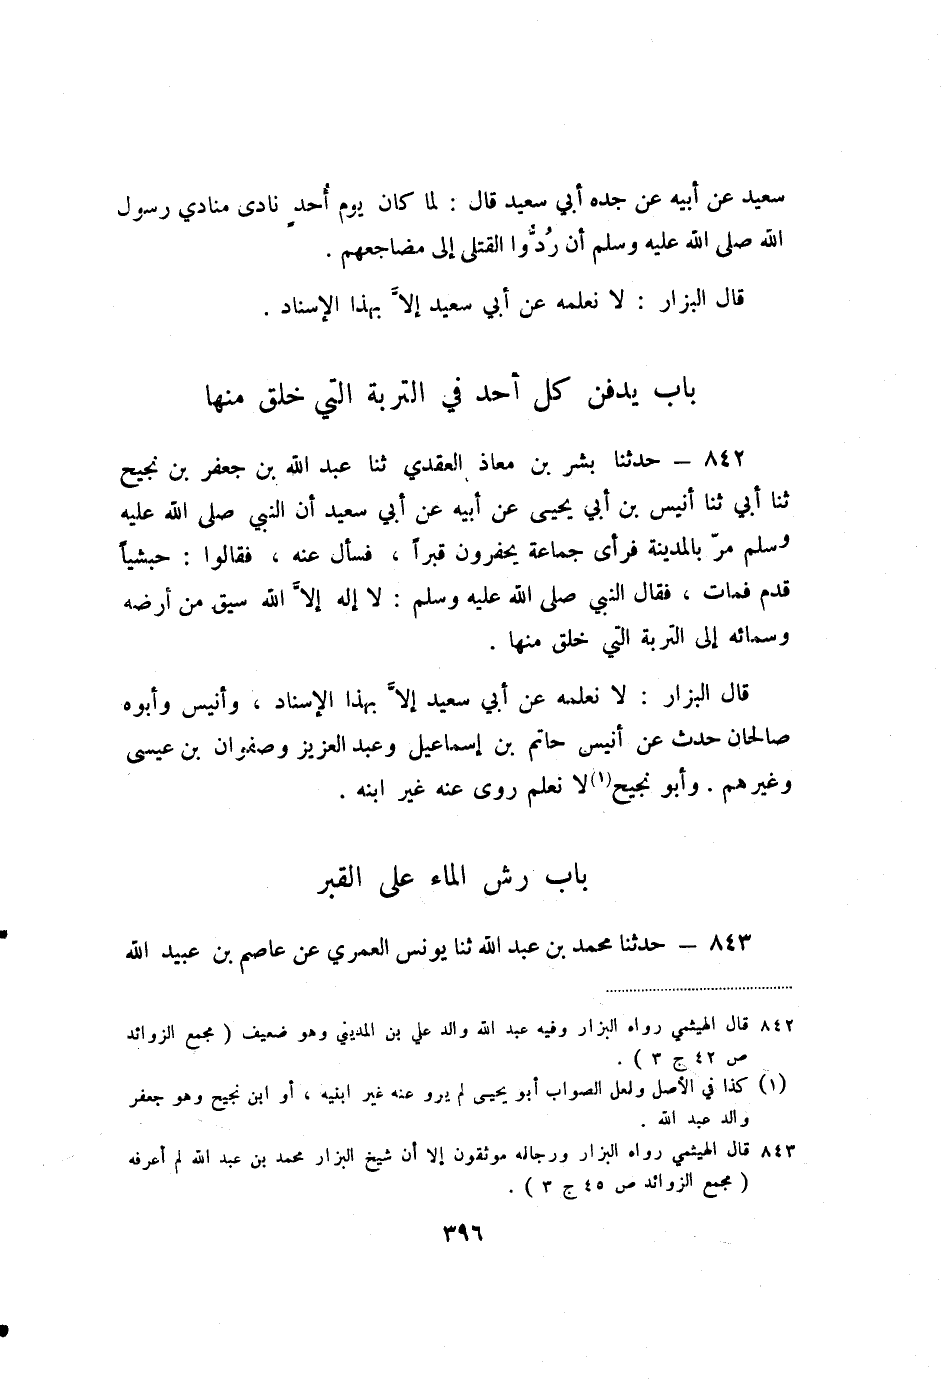 سعيد عن أبيه عن جده أبي سعيد قال : لما كان يوم أُحدٍ نادى منادي رسول
الله صلى الله عليه وسلم أن رُدُّوا القتلى إلى مضاجعهم .
قال البزار : لا نعلمه عن أبي سعيد إلاَّ بهذا الإسناد .
باب يدفن كل أحد في التربة التي خلق منها
٨٤٢ – حدثنا بشر بن معاذ العقدي ثنا عبد الله بن جعفر بن نجيح
ثنا أبي ثنا أنيس بن أبي يحيى عن أبيه عن أبي سعيد أن النبي صلى الله عليه
وسلم مرّ بالمدينة فرأى جماعة يحفرون قبراً ، فسأل عنه ، فقالوا : حبشياً
قدم فمات ، فقال النبي صلى الله عليه وسلم : لا إله إلاَّ الله سيق من أرضه
وسمائه إلى التربة التي خلق منها .
قال البزار : لا نعلمه عن أبي سعيد إلاَّ بهذا الإسناد ، وأنيس وأبوه
صالحان حدث عن أنيس حاتم بن إسماعيل وعبد العزيز وصفوان بن عيسى
وغيرهم . وأبو نجيح(١) لا نعلم روى عنه غير ابنه .
باب رش الماء على القبر
٨٤٣ – حدثنا محمد بن عبد الله ثنا يونس العمري عن عاصم بن عبيد الله
٨٤٢ قال الهيثمي رواه البزار وفيه عبد الله والد علي بن المديني وهو ضعيف ( مجمع الزوائد
ص ٤٢ ج ٣ ) .
(١) كذا في الأصل ولعل الصواب أبو يحيى لم يرو عنه غير ابنيه ، أو ابن نجيح وهو جعفر
والد عبد الله .
٨٤٣ قال الهيثمي رواه البزار ورجاله موثقون إلا أن شيخ البزار محمد بن عبد الله لم أعرفه
( مجمع الزوائد ص ٤٥ ج ٣ ) .
٣٩٦